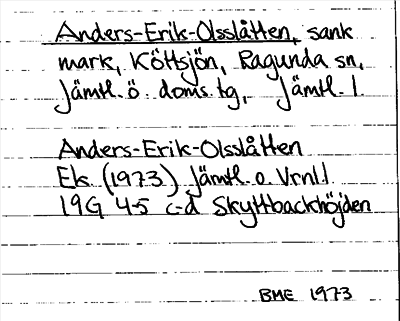 Anders-Erik-Olsslåtten, sank
mark, Köttsjön, Ragunda sn,
Jämtl. ö. doms. tg, Jämtl. l.
Anders-Erik-Olsslåtten
Ek. (1973) Jämtl. o. Vrnl.
19G 4-5 c-d Skyttbackhöjden
BME 1973